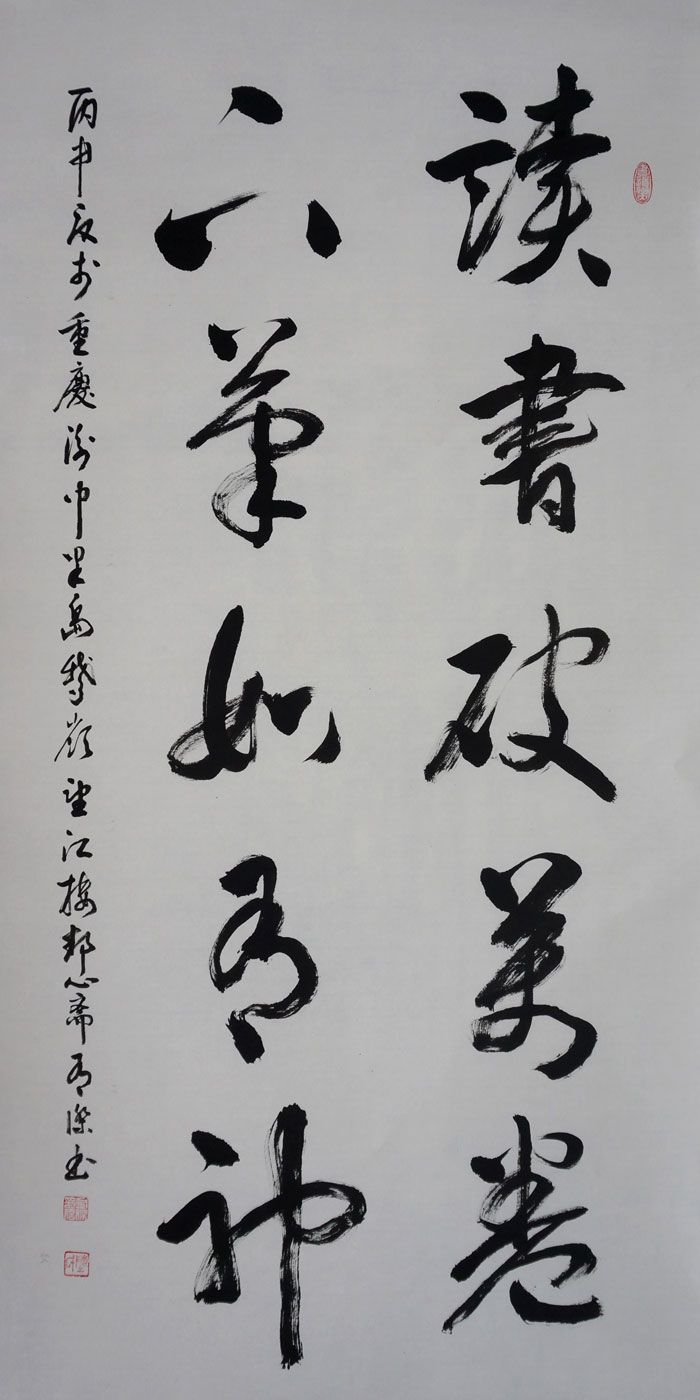 讀書破萬卷
下筆如有神
丙申夏於重慶渝中半島鵝嶺望江樓心斋有傑书